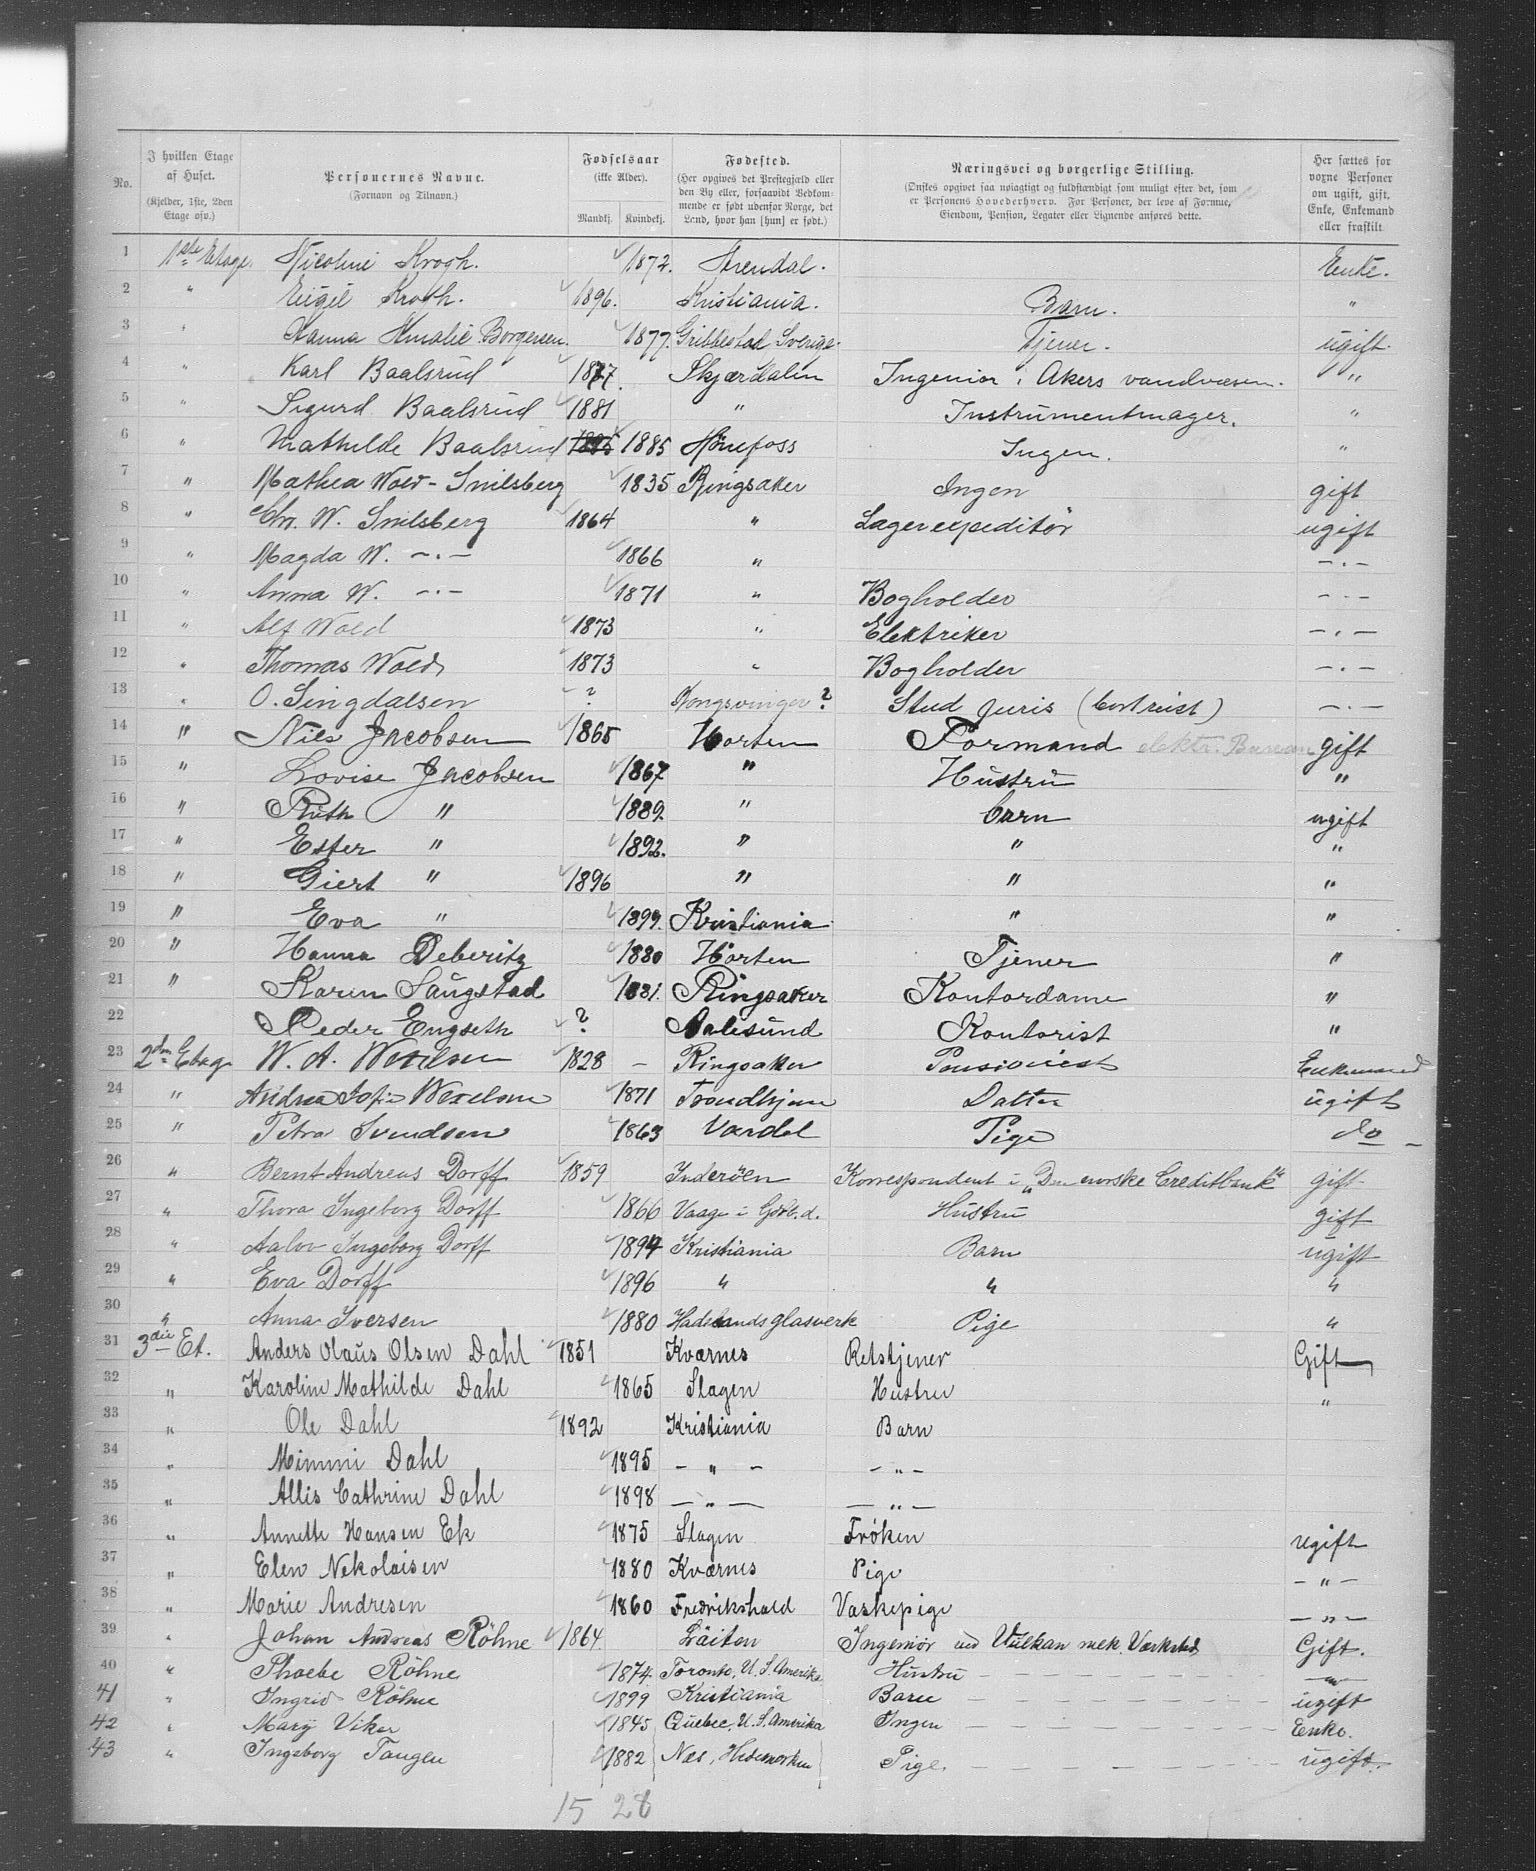 No. I hvilken Etage af Huset. (Kjelder, 1ste, 2den Etage osv.) Personernes Navne. (Fornavn og Tilnavn.) Fødselsaar (ikke Alder). Mandkj. Kvindekj. Fødested. (Her opgives det Prestegjæld eller den By eller, forsaavidt Vedkommende er født udenfor Norge, det Land, hvor han [hun] er født.) Næringsvei og borgerlige Stilling. (Ønskes opgivet saa nøiagtigt og fuldstændigt som muligt efter det, som er Personens Hovederhverv. For Personer, der leve af Formue, Eiendom, Pension, Legater eller Lignende anføres dette. Her sættes for voxne Personer om ugift, gift, Enke, Enkemand eller fraskilt
1 1ste Etage. Nicoline Krogh. 1872. Arendal. Enke.
2 " Eugil Krogh. 1896. Kristiania. Barn. "
3 " Hanna Amalie Borgersen. 1877. Gribbestad Sverige. Tjener. ugift.
4 " Karl Baalsrud 1877. Skjærdalen Ingeniør i Akers vandvæsen. "
5 " Sigurd Baalsrud 1881 " Instrumentmager. "
6 " Mathilde Baalsrud 1885 Hønefoss Ingen. "
7 " Mathea Wold-Snilsberg 1835 Ringsaker Ingen gift
8 " Chr. W. Snilsberg 1864 " Lagerexpeditør ugift
9 " Magda W. -"- 1866 " -"-
10 " Anna W. -"- 1871 " Bogholder -"-
11 " Alf Wold 1873 " Elektriker -"-
12 " Thomas Wold 1873 " Bogholder -"-
13 " O. Singdalsen ? Kongsvinger? Stud juris -"-
14 " Nils Jacobsen 1865 Horten Formand elektr. gift
15 " Lovise Jacobsen 1867 " Hustru "
16 " Ruth " 1889. " barn ugift
17 " Ester " 1892. " " "
18 " Giert " 1896 " " "
19 " Eva " 1899. Kristiania " "
20 " Hanna Deberitz 1880 Horten Tjener "
21 " Karen Saugstad 1881. Ringsaker Kontordame "
22 Peder Engseth ? Aalesund Kontorist "
23 2den Etag W. A. Wexelsen 1828 – Ringsaker Pensionist Enkemand
24 " Andrea Sofie Wexelsen 1871 Trondhjem Datter ugift
25 " Petra Svendsen 1863 Vardal Pige do
26 " Bernt Andreas Dorff 1859 Inderøen Korrespondent i "Den norske Creditbank" gift
27 " Thora Ingeborg Dorff 1866 Vaage i Gdb.d. Hustru gift
28 " Aalov Ingeborg Dorff 1894 Kristiania Barn ugift
29 " Eva Dorff 1896 " " "
30 " Anna Iversen 1880 Hadelands glasverk Pige "
31 3die Et. Anders Olaus Olsen Dahl 1851 Kværnes Retstjener Gift
32 " Karoline Mathilde Dahl 1865 Slagen Hustru "
33 " Ole Dahl 1892 Kristiania Barn
34 " Mimmi Dahl 1895 – " – – " –
35 " Allis Cathrine Dahl 1898 – " – – " –
36 " Annette Hansen Ek 1875 Slagen Frøken ugift
37 " Elen Nekolaisen 1880 Kværnes Pige – " –
38 " Marie Andresen 1860 Fredrikshald Vaskepige – " –
39 " Johan Andreas Röhne 1864 Löiten Ingeniör ved Vulkan mek. Værksted Gift.
40 " Phoebe Röhne 1874. Toronto, U. S. Amerika Hustru – – – – – "
41 " Ingrid Röhne 1899 Kristiania Barn – – – – – ugift
42 " Mary Viker 1845 Quebec, U. S. Amerika Ingen – – – – – Enke.
43 " Ingeborg Taugen 1882 Nes, Hedemarken Pige. – – – – – ugift.
15 28